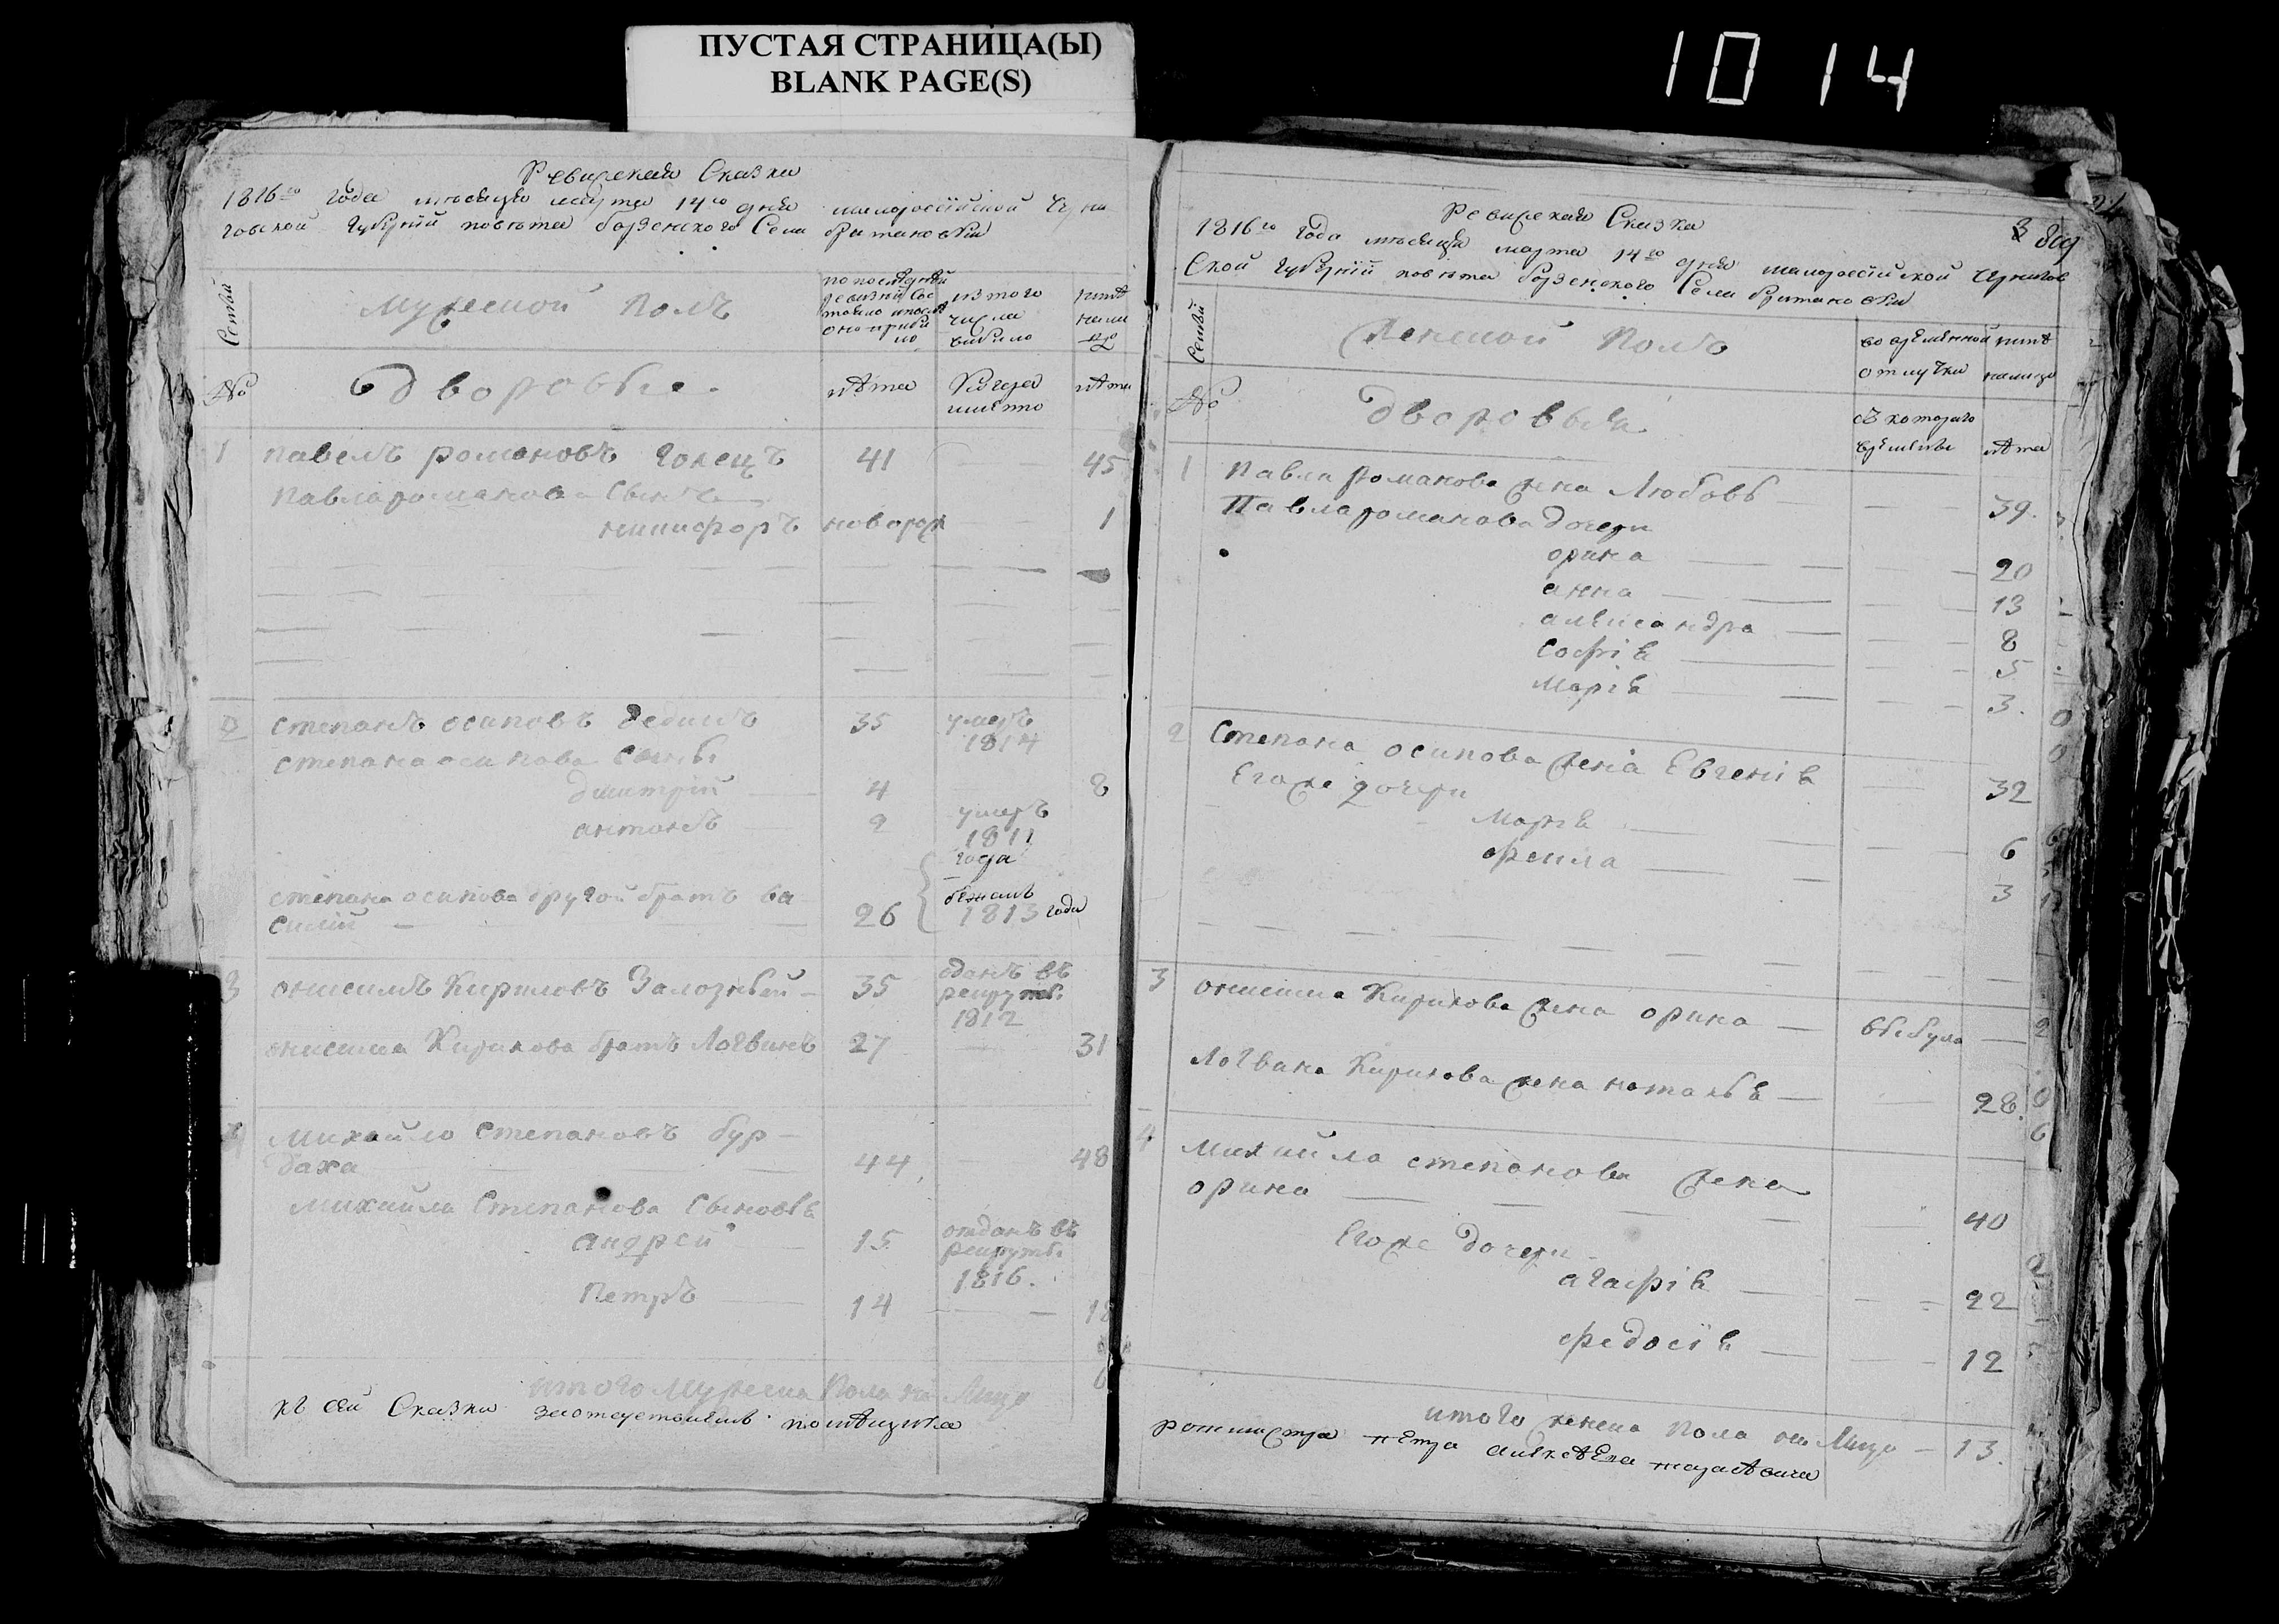 ПУСТАЯ СТРАНИЦА(Ы)
BLANK PAGE(S)
1014
Ревизская Сказка
1816го года месяца марта 14го дня малороссійской Черни
говской губерніи повета борзенского Села британовки
Семьи
Мужеской Полъ
по последней
ревизіи сос
тояло и после
оной прибы
ло
изъ того
числа
выбыло
ныне
на ли
цо
№
дворовые
лета
Когда
именно
лета
1 павелъ романовъ голецъ 41 45
павла романова Сынъ
никифоръ новорож 1
2 степанъ осиповъ 35 умеръ
1814
степана осипова Сыны
дмитрій 4 8
антонъ 2 умеръ
1811
года
степана осипова другой братъ ва
силій 26 бежалъ
1813 года
3 онисимъ Кириловъ Залозный 35 зданъ въ
рекруты
1812
онисима Кирилова братъ Логвинъ 27 31
4 Михайло Степановъ бур
баха 44 48
Михайла Степанова Сыновья
андрей 15 отданъ въ
рекруты
1816.
Петръ 14 18
итого Мужеска Пола на Лицо 6
къ сей Сказки помещика
3 809
Ревизская Сказка
1816го года месяца марта 14го дня малороссійской Чернигов
Ской губерніи повета борзенского Села британовки
Семьи
Женской Полъ
во временной
отлучки
ныне
налицо
№
дворовыя
съ которого
времены
лета
1 Павла Романова жена Любовь 39.
Павла романова дочери
орина 20
анна 13
александра 8
Софія 5
Марія 3.
2 Степана осипова жена Евгенія 32
Егоже дочери
Марія 6
фекла 3
3 онисима Кирилова жена орина выбула
Логвина Кирилова жена наталья 28.
4 Михайла степанова жена
орина 40
Егоже дочери
агафія 22
федосія 12
итого женска пола на Лицо 13.
ротмистра петра алексеева